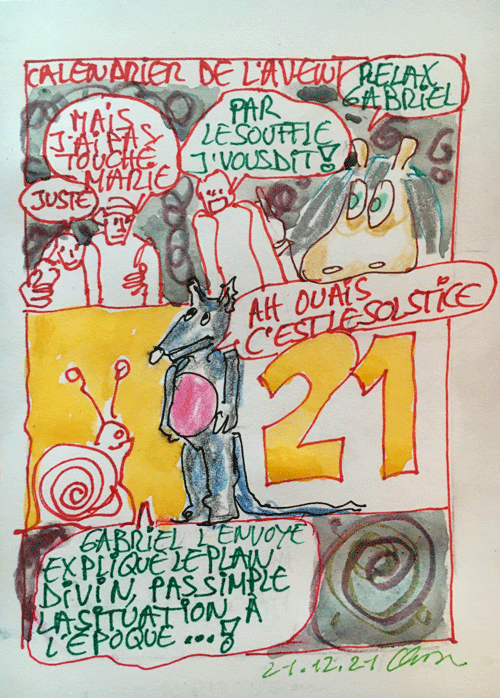 CALENDRIER DE L'AVENT
RELAX
GABRIEL
MAIS
J'AI PAS
TOUCHÉ
MARIE
PAR
LE SOUFFLE
J'VOUS DIT !
JUSTE
AH OUAIS
C'EST LE SOLSTICE
21
GABRIEL L'ENVOYÉ
EXPLIQUE LE PLAN
DIVIN, PAS SIMPLE
LA SITUATION À
L'ÉPOQUE ... !
21.12.21